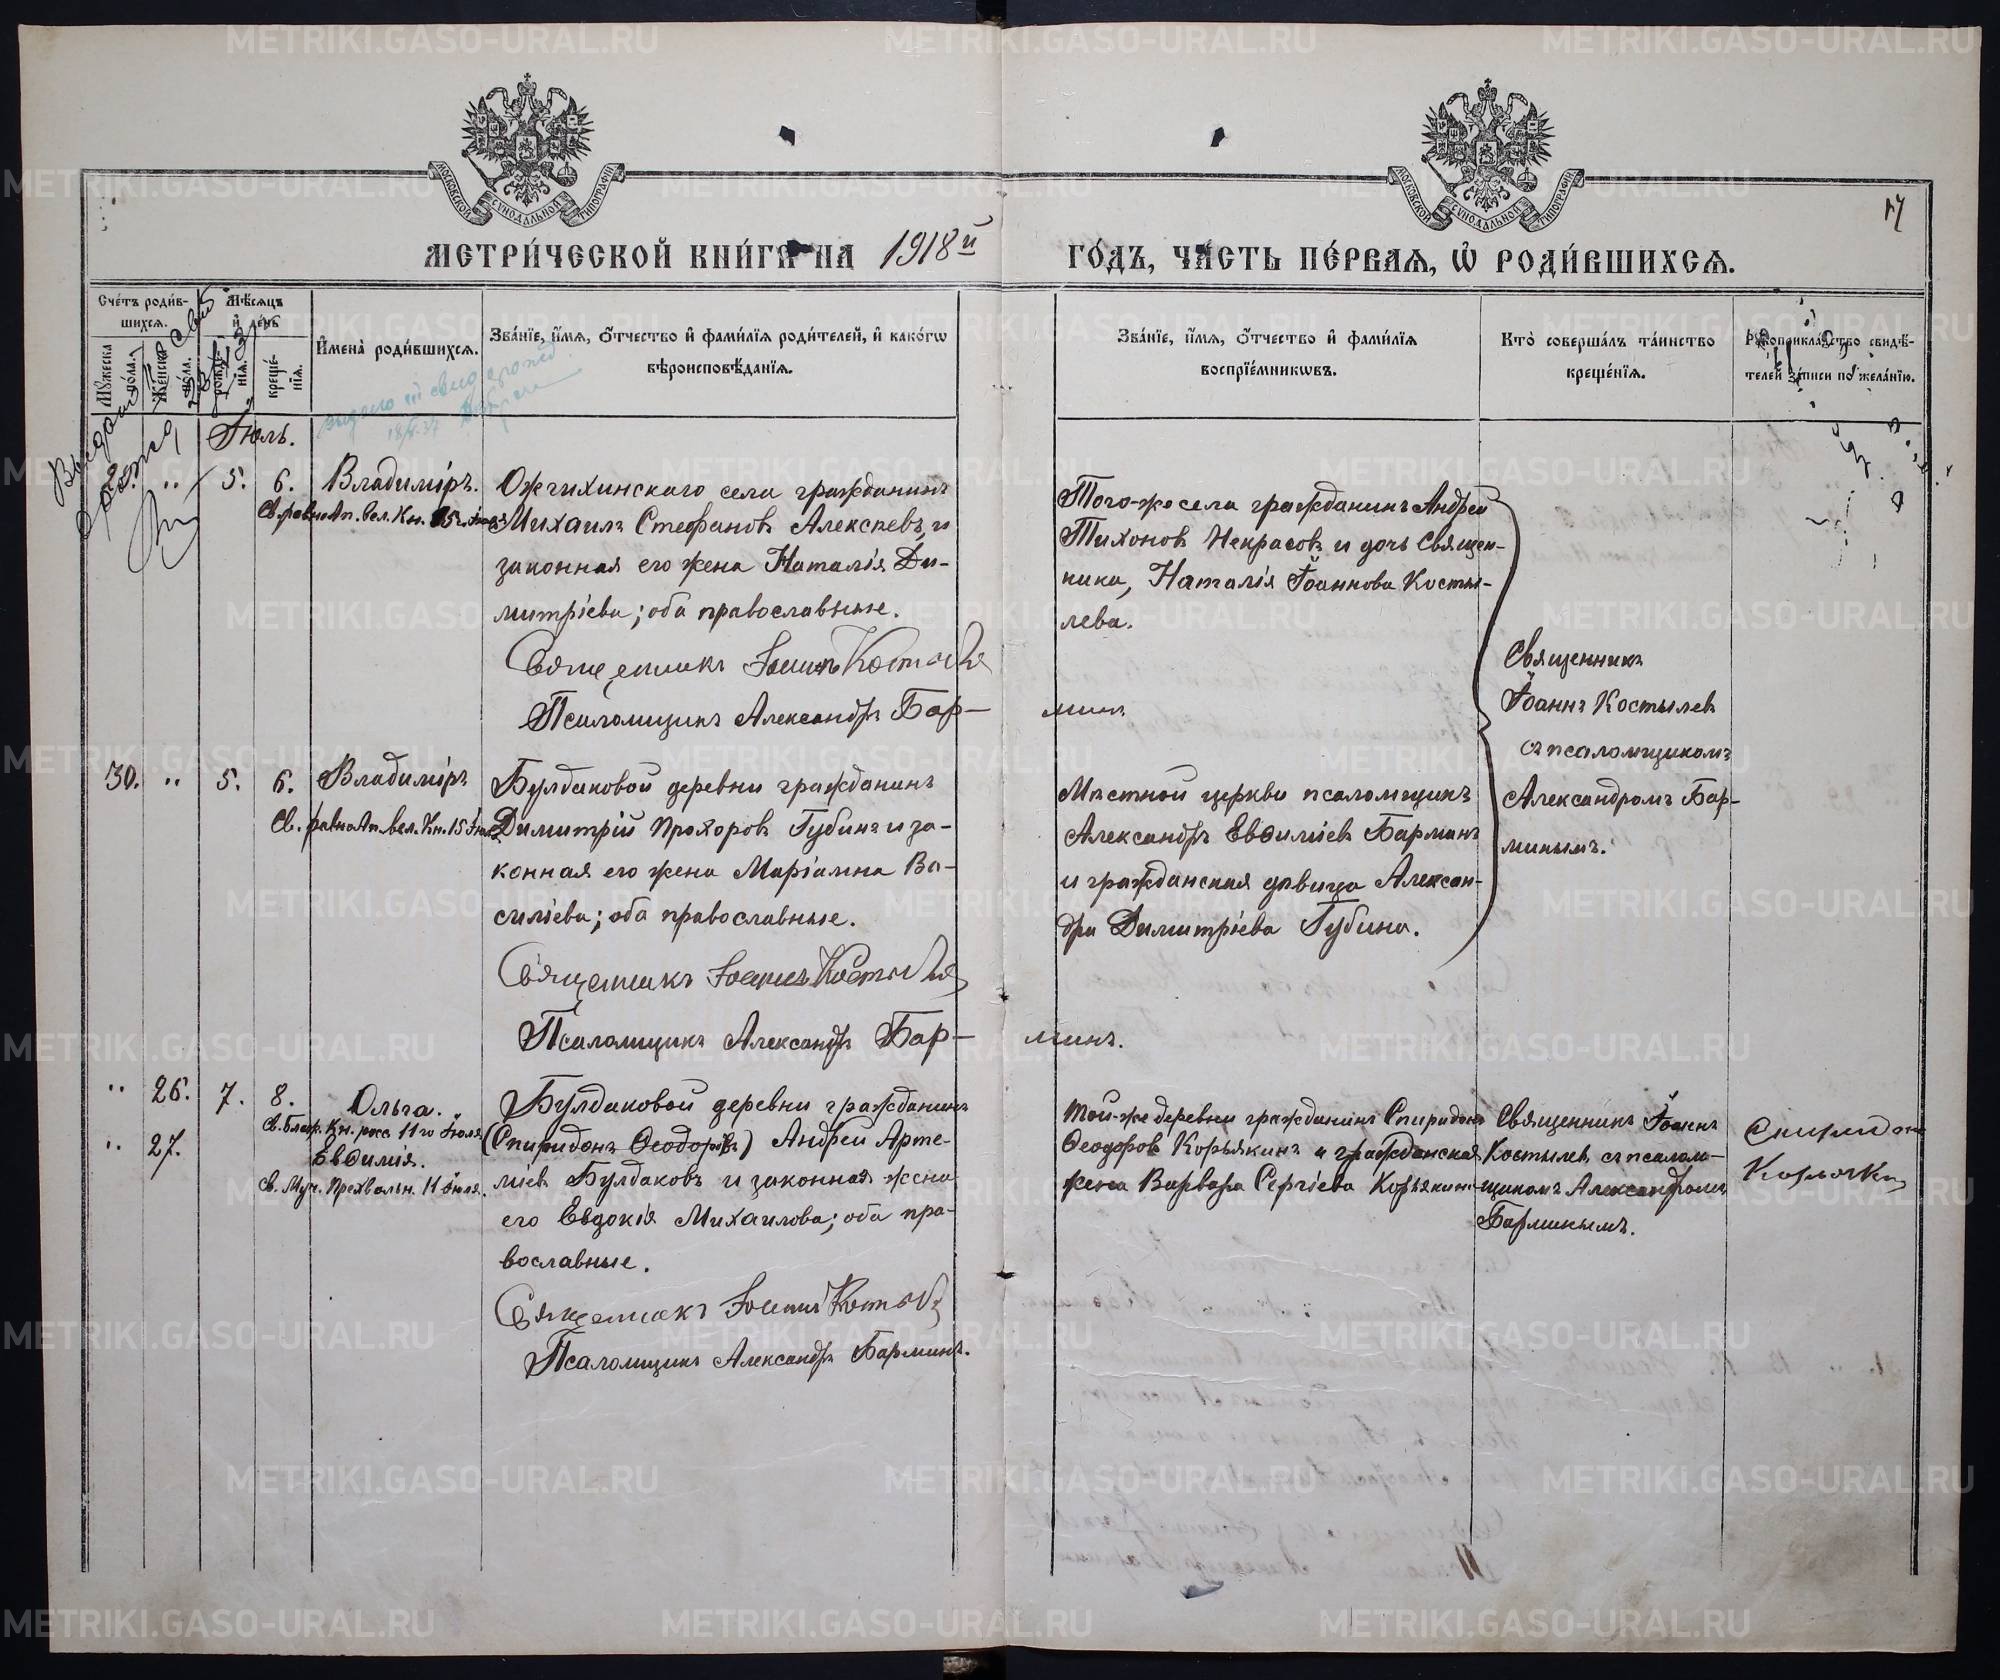 МОСКОВСКОЙ СѴНОДАЛЬНОЙ ТИПОГРАФІИ
МОСКОВСКОЙ СѴНОДАЛЬНОЙ ТИПОГРАФІИ
17
МЕТРИ́ЧЕСКОЙ КНИ́ГИ НА 1918й ГО́ДЪ, ЧА́СТЬ ПЕ́РВАЯ, Ѡ РОДИ́ВШИХСЯ.
Сче́тъ роди́в-
шихся.
Мꙋжеска по́ла.
Же́нска по́ла.
Мѣ́сяцъ
и҆ де́нь
рожде́нїя.
креще́нїя.
И҆мена̀ роди́вшихся.
Зва́нїе, и҆́мя, о҆́тчество и҆ фами́лїя роди́телей, и҆ како́гѡ
вѣроисповѣ́данїя.
Зва́нїе, и҆́мя, о҆́тчество и҆ фами́лїя
воспрїе́мникѡвъ.
Кто̀ соверша́лъ та́инство
креще́нїя.
Рꙋкоприкла́дство свидѣ́-
телей за́писи по жела́нїю.
Іюль.
29. " 5. 6. Владиміръ.
Св. равноАп. вел. Кн. 15го Іюля
Ожгихинскаго села гражданинъ
Михаилъ Стефановъ Алексѣевъ, и
законная его жена Наталія Ди-
митріева; оба православные.
Священникъ Іоаннъ Костылев
Псаломщикъ Александръ Бар-
минъ
Того-же села гражданинъ Андрей
Тихоновъ Некрасовъ и дочь Священ-
ника, Наталія Іоаннова Косты-
лева.
Священникъ
Іоаннъ Костылевъ
съ псаломщикомъ
Александромъ Бар-
минымъ.
30. " 5. 6. Владиміръ
Св. равноАп. вел. Кн. 15 Іюля
Булдаковой деревни гражданинъ
Димитрій Прохоровъ Губинъ и за-
конная его жена Маріамна Ва-
силіева; оба православные.
Священникъ Іоаннъ Костылев
Псаломщикъ Александръ Бар-
минъ.
Мѣстной церкви псаломщикъ
Александръ Евѳиміевъ Барминъ
и гражданская дѣвица Алексан-
дра Димитріева Губина.
" 26. 7. 8. Ольга.
Св. Благ. Кн. росс 11го Іюля
" 27. Евѳимія.
св. Муч. Прехвальн. 11 Іюля.
Булдаковой деревни гражданинъ
(Спиридонъ Ѳеодоровъ) Андрей Арте-
міевъ Булдаковъ и законная жена
его Евдокія Михаилова; оба пра-
вославные.
Священникъ Іоаннъ Костылев
Псаломщикъ Александръ Барминъ.
Той-же деревни гражданинъ Спиридонъ
Ѳеодоровъ Корьякинъ и гражданская
жена Варвара Сергіева Корьякина
Священникъ Іоаннъ
Костылевъ съ псалом-
щикомъ Александромъ
Барминымъ.
Спиридонъ
METRIKI.GASO-URAL.RU